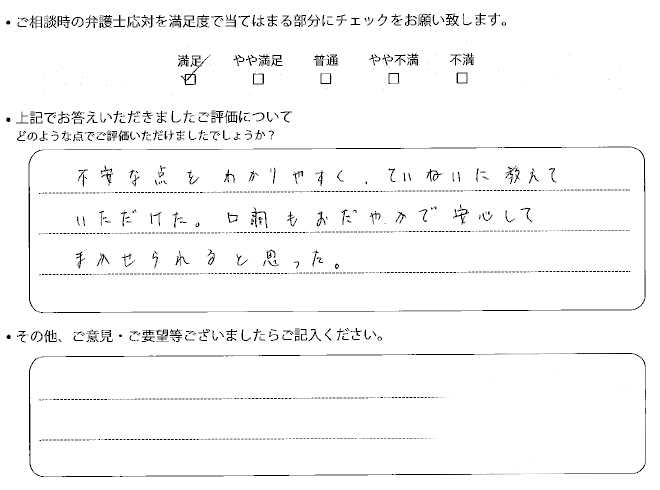 ・ご相談時の弁護士応対を満足度で当てはまる部分にチェックをお願い致します。
満足 やや満足 普通 やや不満 不満
☑ □ □ □ □
・上記でお答えいただきましたご評価について
どのような点でご評価いただけましたでしょうか？
不安な点をわかりやすく、ていねいに教えて
いただけた。口調もおだやかで安心して
まかせられると思った。
・その他、ご意見・ご要望等ございましたらご記入ください。